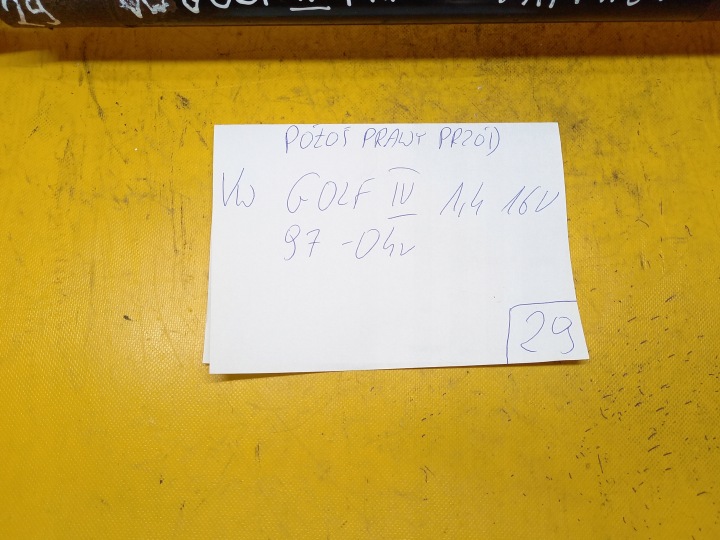 VW GOLF IV
PÓŁOŚ PRAWY PRZÓD
VW GOLF IV 1,4 16V
97 -04r
29